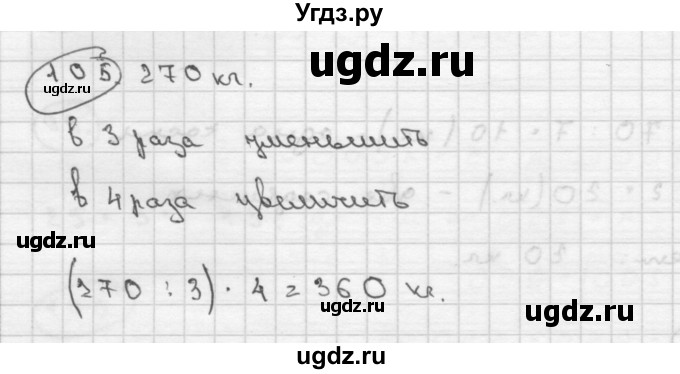 Угдз.ру
105. 270 кг.
ugdz.ru
ugdz.ru
в 3 раза уменьшить
ugdz.ru
в 4 раза увеличить
ugdz.ru
ugdz.ru
(270 : 3) · 4 = 360 кг.
ugdz.ru
ugdz.ru
ugdz.ru